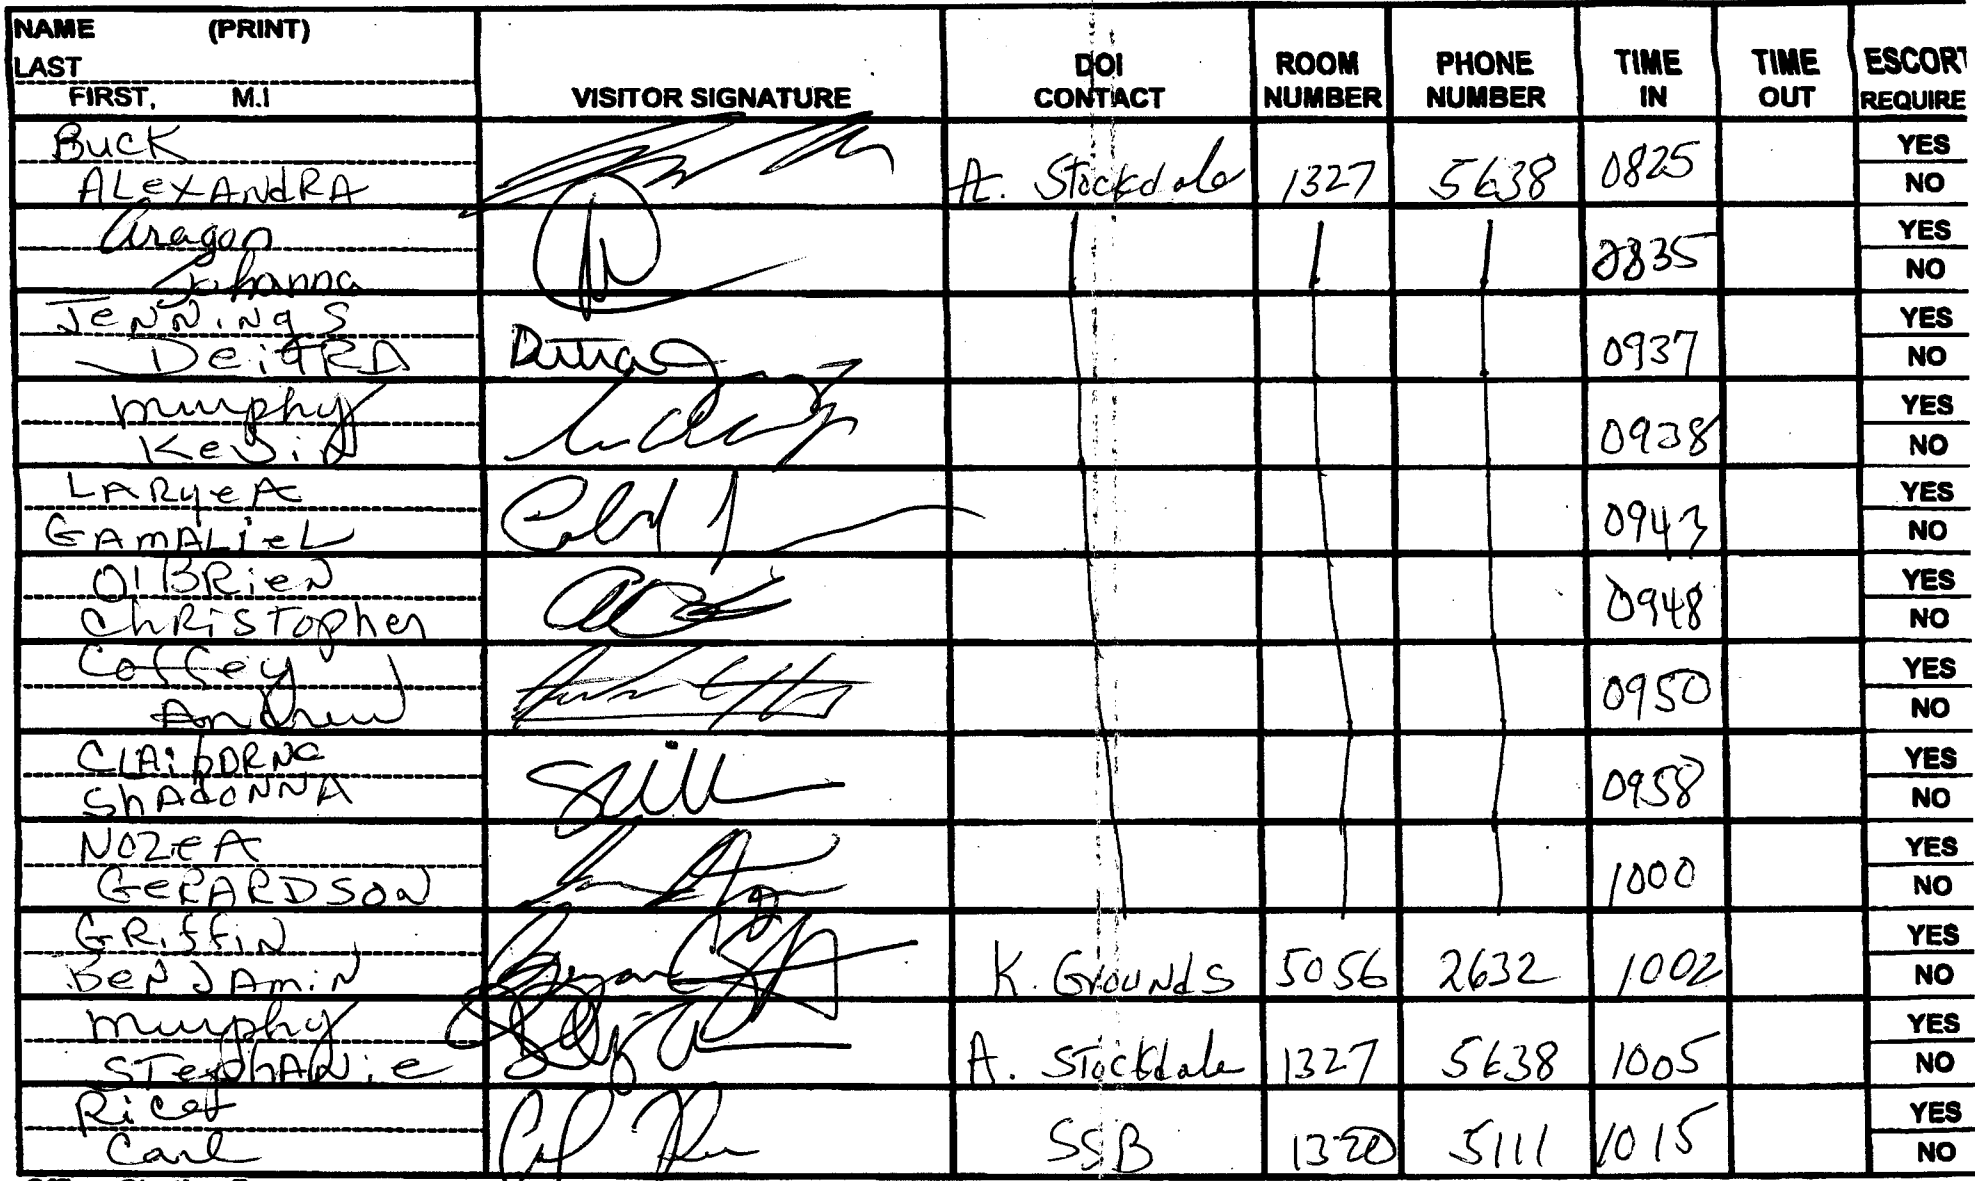 NAME (PRINT)
LAST
FIRST, M.I
VISITOR SIGNATURE
DOI
CONTACT
ROOM
NUMBER
PHONE
NUMBER
TIME
IN
TIME
OUT
ESCORT
REQUIRE
Buck
ALexANdRA
A. Stockdale 1327 5638 0825
YES
NO
Aragon
Johanna
0835
YES
NO
JeNNiNgS
DeidRA
0937
YES
NO
murphy
KeviN
0938
YES
NO
LARyeA
GAmALieL
0943
YES
NO
O'BRieN
ChRiSTopher
0948
YES
NO
Coffey
Andrew
0950
YES
NO
CLAiboRNe
ShAdONNA
0958
YES
NO
NOZeA
GeRARDSON
1000
YES
NO
GRiffiN
BeNJAmiN
K. GrouNdS 5056 2632 1002
YES
NO
murphy
STephANie
A. Stockdale 1327 5638 1005
YES
NO
Carl
SSB 1320 5111 1015
YES
NO